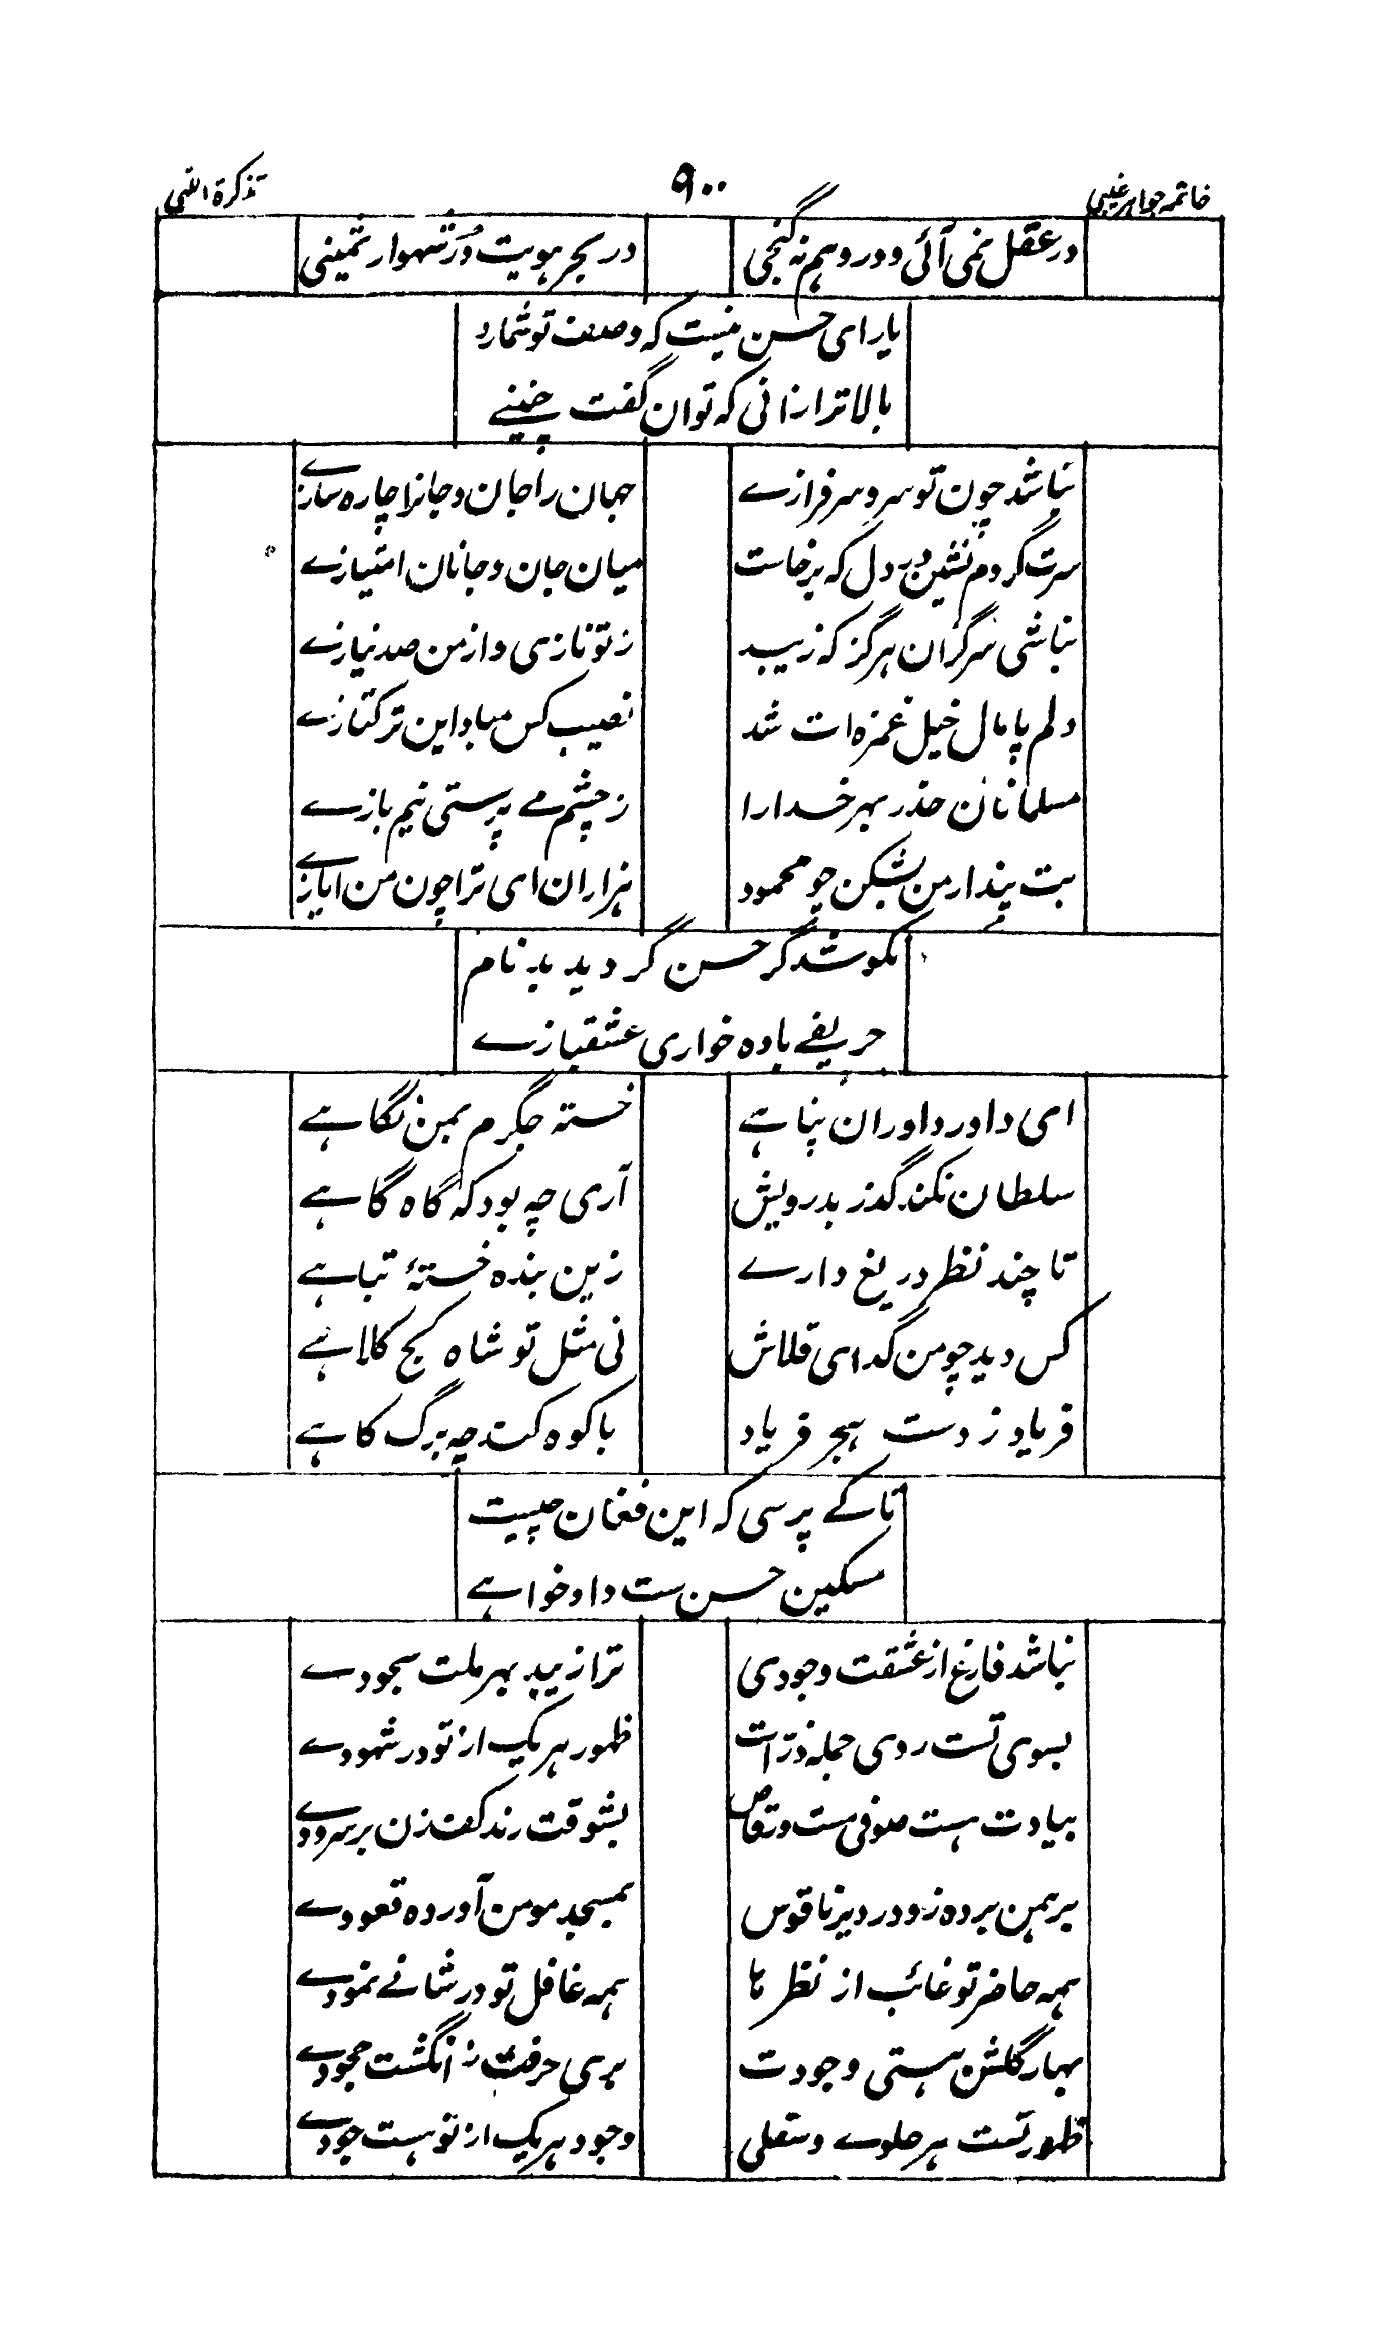 خاتمہ جواہر غیبی ۹۰۰ تذکرة النبی
در عقل نمی آئی و در وہم نہ گنجی در بحر ہویت دُرّ شہوار ثمینی
یارای حسن نیست کہ وصف تو شمارد
بالاتر ازانی کہ توان گفت چنینے
نباشد چون تو سرو سرفرازے جہان را جان و جانرا چارہ سازے
سرت گردم نشین در دل کہ برخاست میان جان و جانان امتیازے
نباشی سرگران ہرگز کہ زیبد ز تو نازی و از من صد نیازے
دلم پامال خیل غمزہ ات شد نصیب کس مباد این ترکتازے
مسلمانان حذر بہر خدا را ز چشم مے پرستی نیم بازے
بت پندار من بشکن چو محمود ہزاران ای ترا چون من ایازے
نکو شد گر حسن گردید بدنام
حریفے بادہ خواری عشقبازے
ای داور داوران پناہے خستہ جگرم بمن نگاہے
سلطان نکند گذر بدرویش آری چہ بود کہ گاہ گاہے
تا چند نظر دریغ دارے زین بندہ خستۂ تباہے
کس دید چو من گدای قلاش نی مثل تو شاہ کج کلاہے
فریاد ز دست ہجر فریاد با کوہ کند چہ برگ کاہے
تا کے پرسی کہ این فغان چیست
مسکین حسن ست دادخواہے
نباشد فارغ از عشقت وجودی ترا زیبد بہر ملت سجودے
بسوی تست روی جملہ ذرّات ظہور ہر یک از تو در شہودے
بیادت ہست صوفی مست و رقاص بشوقت رند کف زن بر سرودے
برہمن بردہ زو در دیر ناقوس بمسجد مومن آوردہ قعودے
ہمہ حاضر تو غائب از نظرہا ہمہ غافل تو در شانے نمودے
بہار گلشن ہستی وجودت بری حرفت ز انگشت جحودے
ظہور تست ہر علوے و سفلی وجود ہر یک از تو ہست جودے